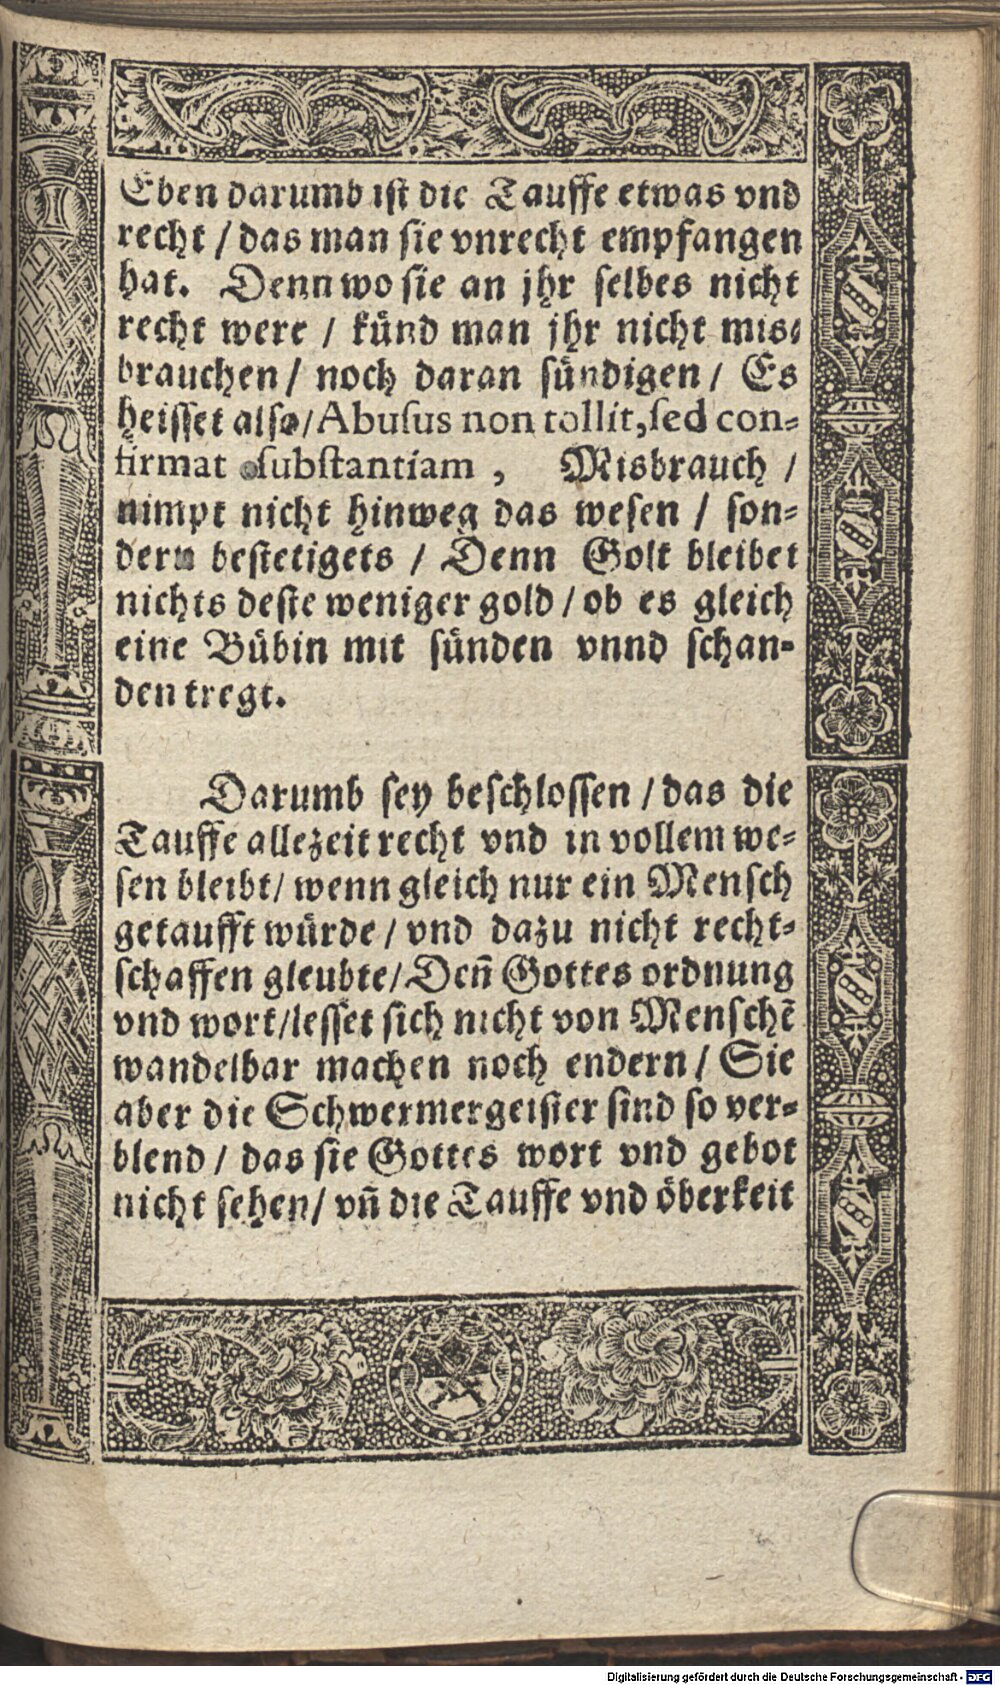 Eben darumb ist die Tauffe etwas vnd
recht / das man sie vnrecht empfangen
hat. Denn wo sie an jhr selbes nicht
recht were / künd man jhr nicht mis-
brauchen / noch daran sündigen / Es
heisset also / Abusus non tollit, sed con-
firmat substantiam , Misbrauch /
nimpt nicht hinweg das wesen / son-
dern bestetigets / Denn Golt bleibet
nichts deste weniger gold / ob es gleich
eine Bübin mit sünden vnnd schan-
den tregt.
Darumb sey beschlossen / das die
Tauffe allezeit recht vnd in vollem we-
sen bleibt / wenn gleich nur ein Mensch
getaufft würde / vnd dazu nicht recht-
schaffen gleubte / Deñ Gottes ordnung
vnd wort / lesset sich nicht von Menschẽ
wandelbar machen noch endern / Sie
aber die Schwermergeister sind so ver-
blend / das sie Gottes wort vnd gebot
nicht sehen / vñ die Tauffe vnd öberkeit
Digitalisierung gefördert durch die Deutsche Forschungsgemeinschaft - DFG